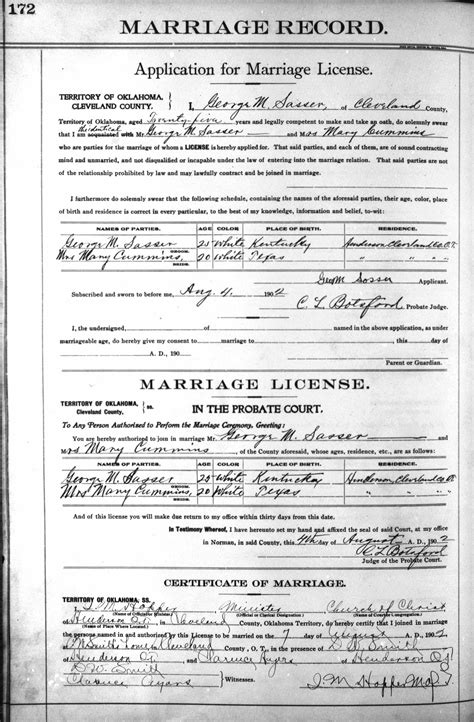 172
MARRIAGE RECORD.
Application for Marriage License.
TERRITORY OF OKLAHOMA,
CLEVELAND COUNTY.
I, George M. Sasser, of Cleveland County,
Territory of Oklahoma, aged Twenty-Five years and legally competent to make and take an oath, do solemnly swear
that I am the identical acquainted with Mr. George M. Sasser and Mrs Mary Cummins
who are parties for the marriage of whom a LICENSE is hereby applied for. That said parties, and each of them, are of sound contracting
mind and unmarried, and not disqualified or incapable under the law of entering into the marriage relation. That said parties are not of
the relationship prohibited by law and may lawfully contract and be joined in marriage.
I furthermore do solemnly swear that the following schedule, containing the names of the aforesaid parties, their age, color, place
of birth and residence is correct in every particular, to the best of my knowledge, information and belief, to-wit:
NAMES OF PARTIES. AGE COLOR PLACE OF BIRTH. RESIDENCE.
George M. Sasser GROOM. 25 White Kentucky Henderson, Cleveland Co. O.T.
Mrs Mary Cummins, BRIDE. 20 White Texas " " "
Geo M Sasser Applicant.
Subscribed and sworn to before me, Aug. 4 1902
C. L. Botsford Probate Judge.
I, the undersigned, of named in the above application, as under
marriageable age, do hereby give my consent to marriage to this day of
A. D., 190
Parent or Guardian.
MARRIAGE LICENSE.
TERRITORY OF OKLAHOMA,
Cleveland County, ss.
IN THE PROBATE COURT.
To Any Person Authorized to Perform the Marriage Ceremony, Greeting:
You are hereby authorized to join in marriage Mr. George M. Sasser and
Mrs Mary Cummins of the County aforesaid, whose ages, residence, etc., are as follows:
NAMES OF PARTIES. AGE COLOR PLACE OF BIRTH. RESIDENCE.
George M. Sasser GROOM. 25 White Kentucky Henderson, Cleveland Co. O.T.
Mrs Mary Cummins, BRIDE. 20 White Texas " " "
And of this license you will make due return to my office within thirty days from this date.
In Testimony Whereof, I have hereunto set my hand and affixed the seal of said Court, at my office
in Norman, in said County, this 4th day of August A. D., 1902
C. L. Botsford
Judge of the Probate Court.
CERTIFICATE OF MARRIAGE.
TERRITORY OF OKLAHOMA, SS.
I, J. M. Hopper Minister Church of Christ
(Name of Official or Minister) (Official or Clerical Designation) (Name of Court or Congregation)
of Henderson O.T. Cleveland County, Oklahoma Territory, do hereby certify that I joined in marriage
(Name of Place Where Located.)
the persons named in and authorized by this License to be married on the 7 day of August A. D. 1902
Cleveland County, O. T., in the presence of D. W. Smith
of Henderson O.T. and Clarence of Henderson O.T.
D. W. Smith
Clarence Witnesses. J. M. Hopper